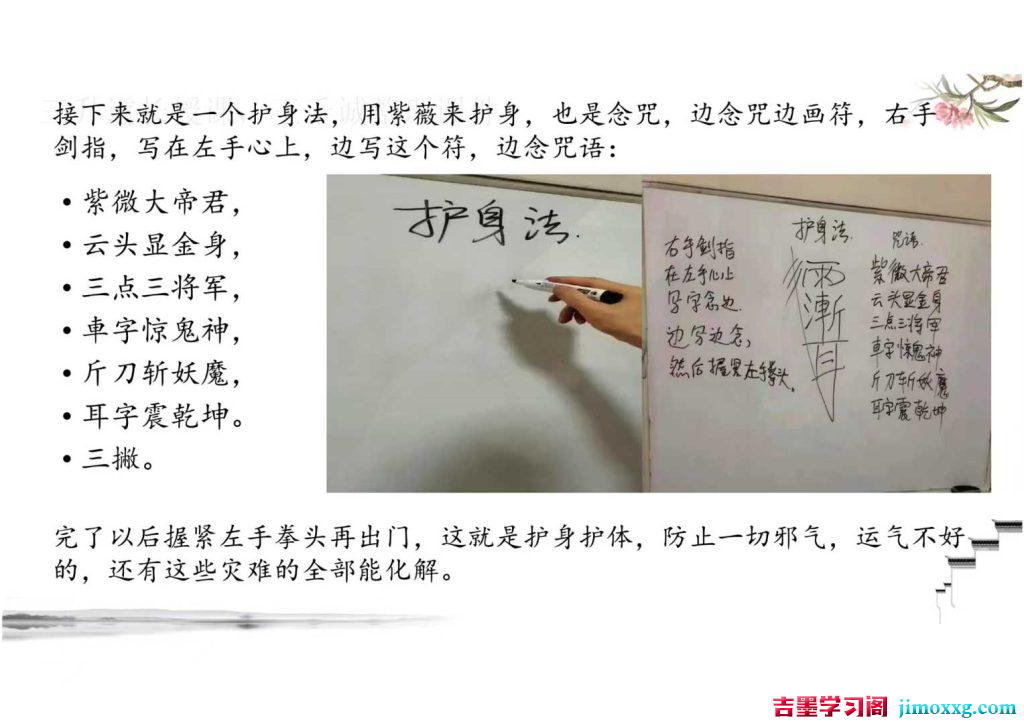 接下来就是一个护身法，用紫薇来护身，也是念咒，边念咒边画符，右手
剑指，写在左手心上，边写这个符，边念咒语：
• 紫微大帝君，
• 云头显金身，
• 三点三将军，
• 車字惊鬼神，
• 斤刀斩妖魔，
• 耳字震乾坤。
• 三撇。
护身法.
护身法.
右手剑指
在左手心上
写字念边.
边写边念，
然后握紧左手拳头.
咒语.
紫微大帝君
云头显金身
三点三将军
車字惊鬼神
斤刀斩妖魔
耳字震乾坤
完了以后握紧左手拳头再出门，这就是护身护体，防止一切邪气，运气不好
的，还有这些灾难的全部能化解。
吉墨学习阁 jimoxxg.com